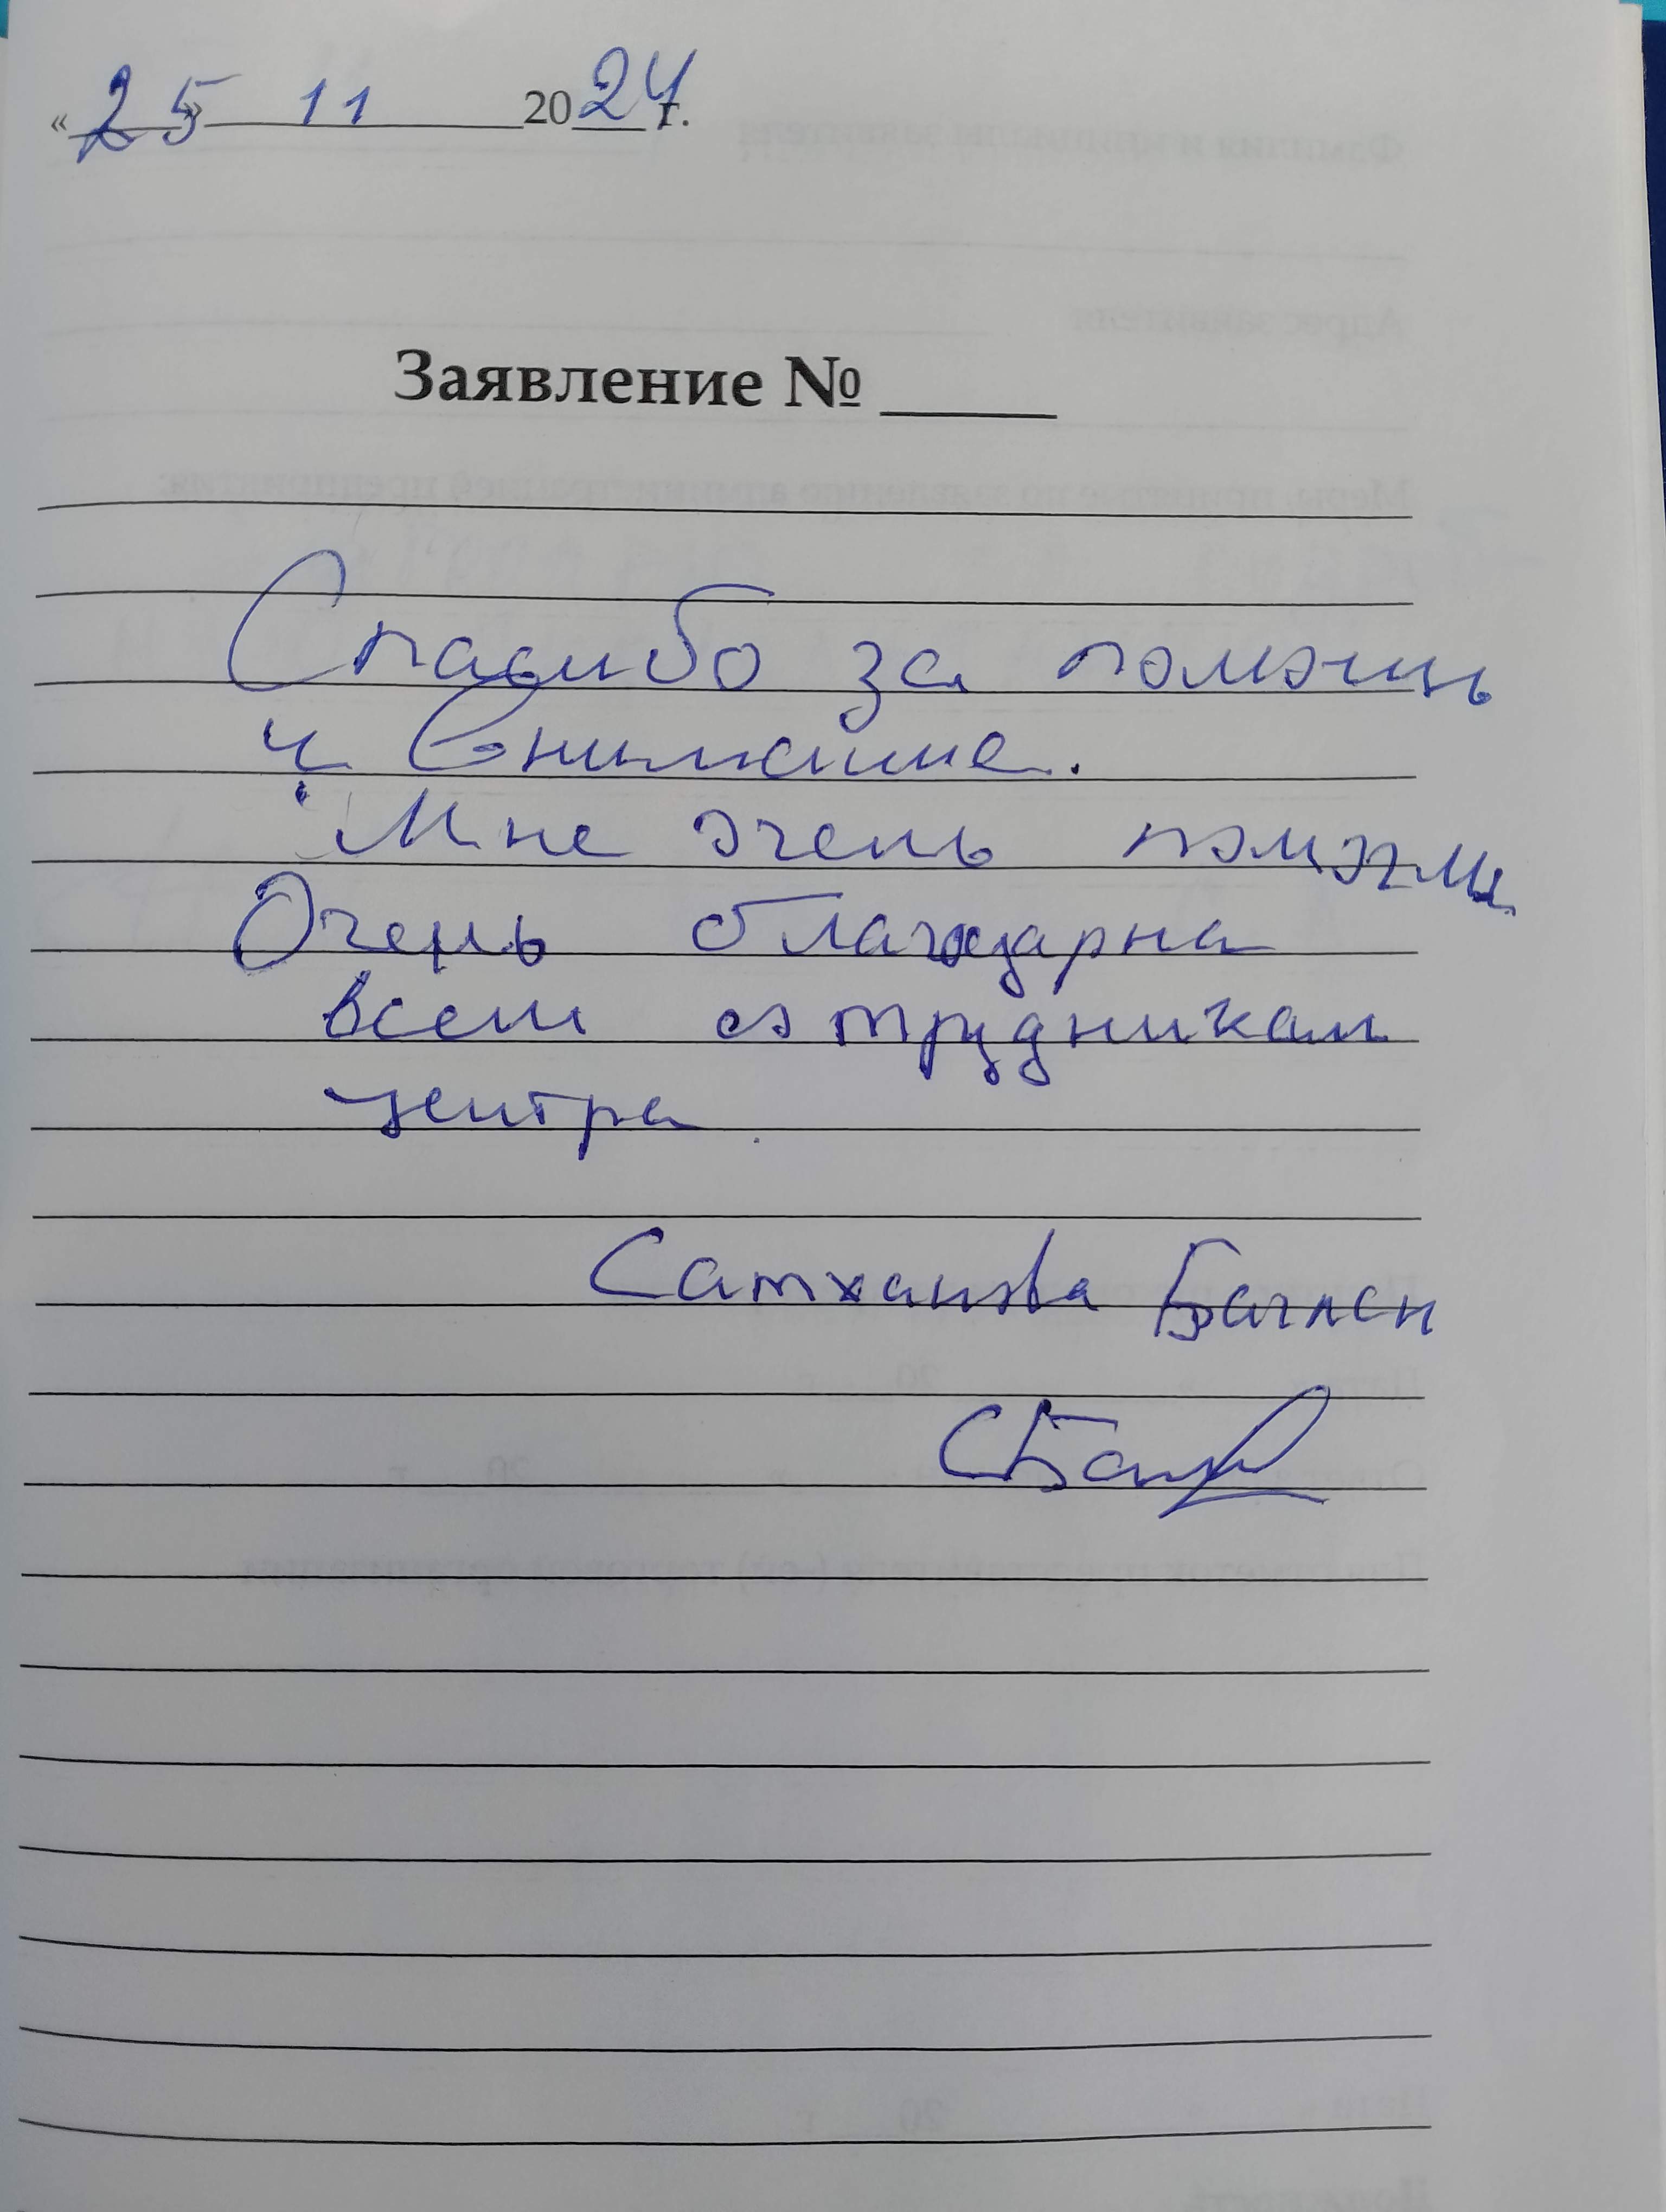 «25» 11 2024 г.
Заявление № _____
Спасибо за помощь
и внимание.
Мне очень помогли
Очень благодарна
всем сотрудникам
центра.
Сатханова Баглан